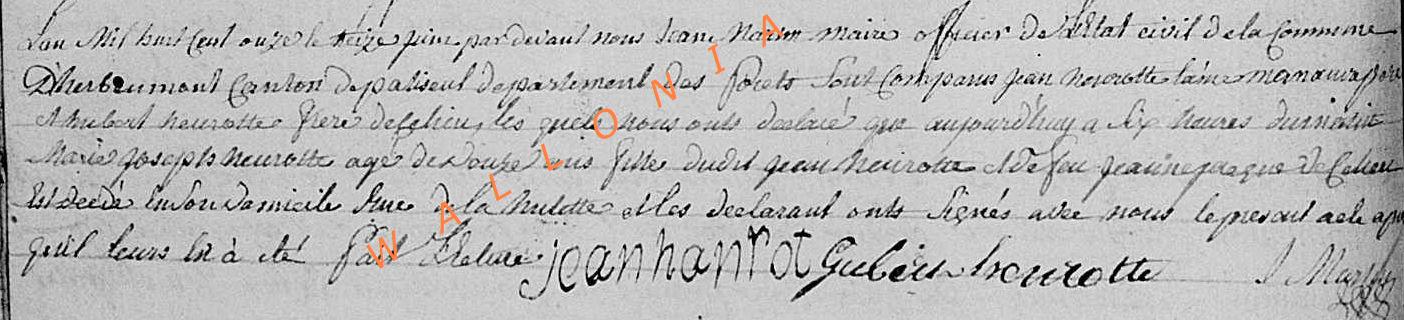 L'an Mil huit Cent onze le treize juin par devant nous Jean Martin maire officier de L'Etat civil de la Commune
D'herbeumont Canton de paliseul departement des forets Sont Comparus jean heurotte laine manoeuvre
et hubert heurotte frere de Celieu, les quels nous onts declaré que aujourd'huy a Six heures du matin
Marie joseph heurotte agé de douze ans fille dudit jean heurotte et de feu jeanne de Celieu
Est decedé en Son domicile Rue de la hulotte et les declarant onts Signés avec nous le present acte
qu'il leurs en à été fait Lecture jean hanrot heurotte J Martin
WALLONIA